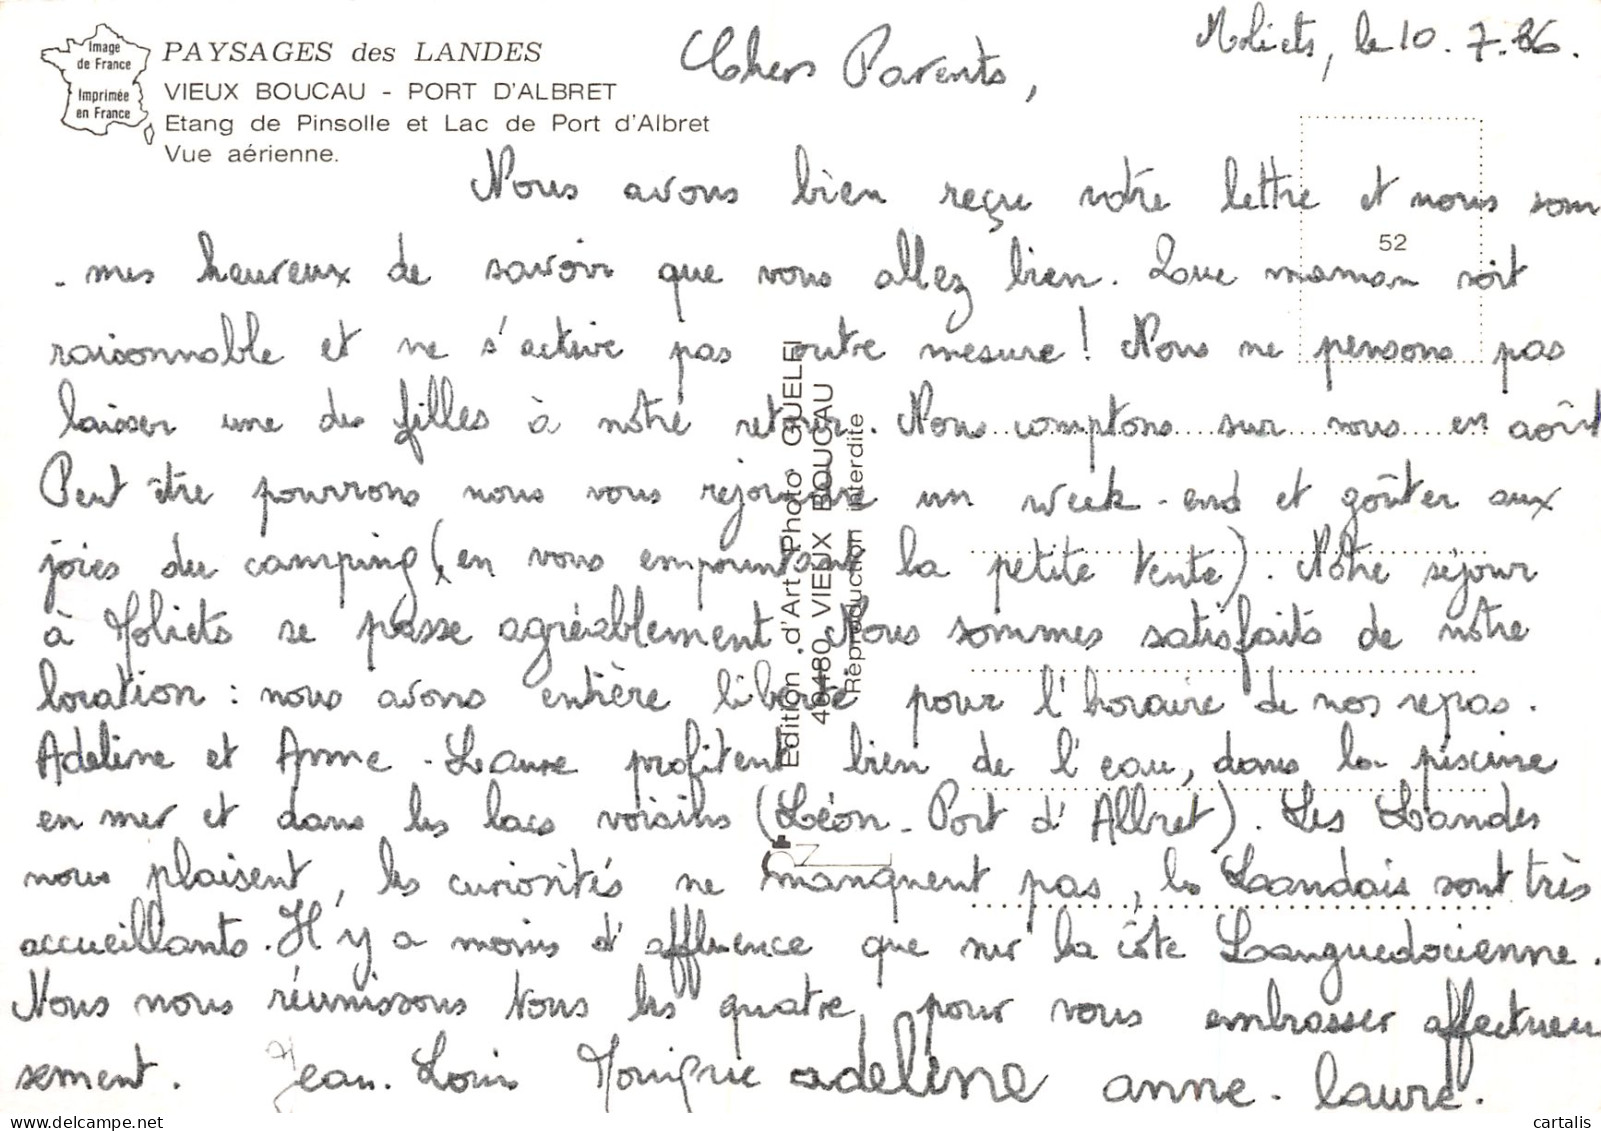 Image
de France
Imprimée
en France
PAYSAGES des LANDES
VIEUX BOUCAU - PORT D'ALBRET
Etang de Pinsolle et Lac de Port d'Albret
Vue aérienne.
Moliets, le 10.7.86.
Chers Parents,
52
Nous avons bien reçu votre lettre et nous som
-mes heureux de savoir que vous allez bien. Que maman soit
raisonnable et ne s'active pas outre mesure! Nous ne pensons pas
laisser une des filles à nôtre retour. Nous comptons sur vous en août
Peut être pourrons nous vous rejoindre un week-end et goûter aux
joies du camping (en vous empruntant la petite tente). Nôtre séjour
à Moliets se passe agréablement Nous sommes satisfaits de nôtre
location : nous avons entière liberté pour l'horaire de nos repas.
Adeline et Anne-Laure profitent bien de l'eau, dans la piscine
en mer et dans les lacs voisins (Léon - Port d'Albret). Les Landes
nous plaisent, les curiosités ne manquent pas, les Landais sont très
accueillants. Il y a moins d'affluence que sur la côte Languedocienne.
Nous nous réunissons tous les quatre pour vous embrasser affectueu
sement. Jean-Louis Monique adeline anne-laure.
Edition d'Art Photo GUELFI
40480 VIEUX BOUCAU
Reproduction interdite
cartalis
www.delcampe.net